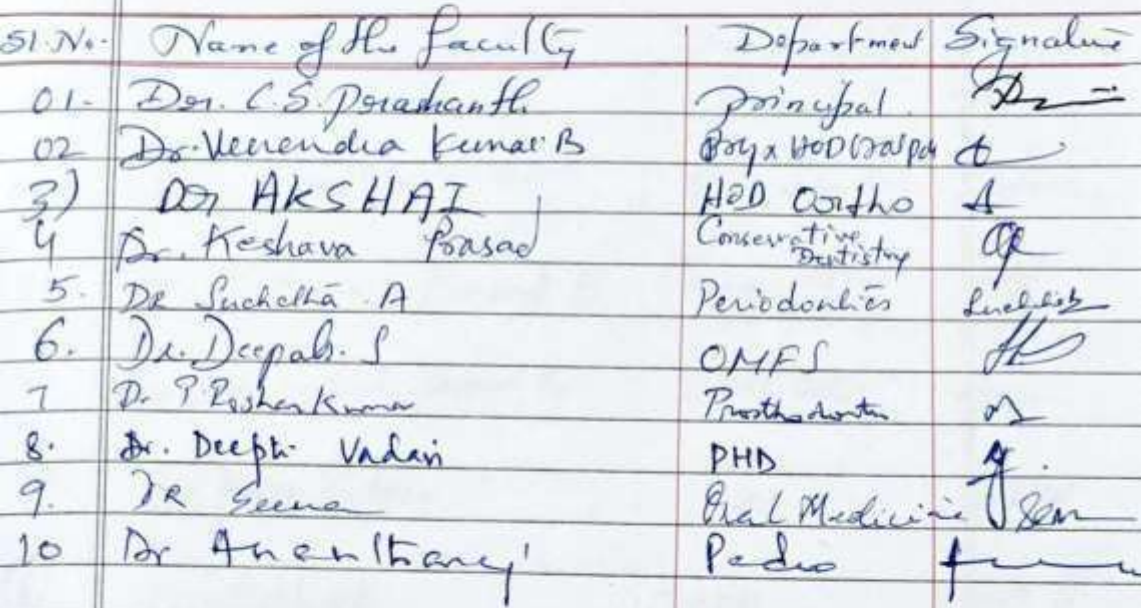 Sl. No. Name of the faculty Department Signature
01. Dr. C.S. Prashanth Principal.
02 Dr. Veerendra Kumar B HOD
3) Dr AKSHAI HOD Ortho
4 Dr. Keshava Prasad Conservative Dentistry
5. DR Suchetha A Periodontics
6. Dr. Deepak. S OMFS
7 Dr P Roshan Kumar Prosthodontics
8. Dr. Deepti Vadavi PHD
9. DR Seema Oral Medicine
10 Dr Ananthraj Pedo